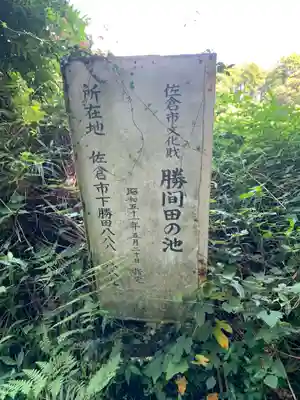 佐倉市文化財
勝間田の池
昭和五十一年五月二十日
所在地 佐倉市下勝田八八八